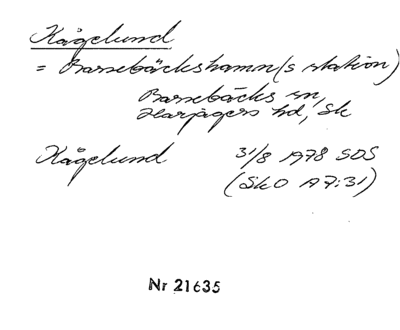 Kågelund
= Barsebäckshamn(s station)
Barsebäcks sn,
Harjagers hd, Sk
Kågelund 31/8 1978 SDS
(SkO A7:31)
Nr 21635